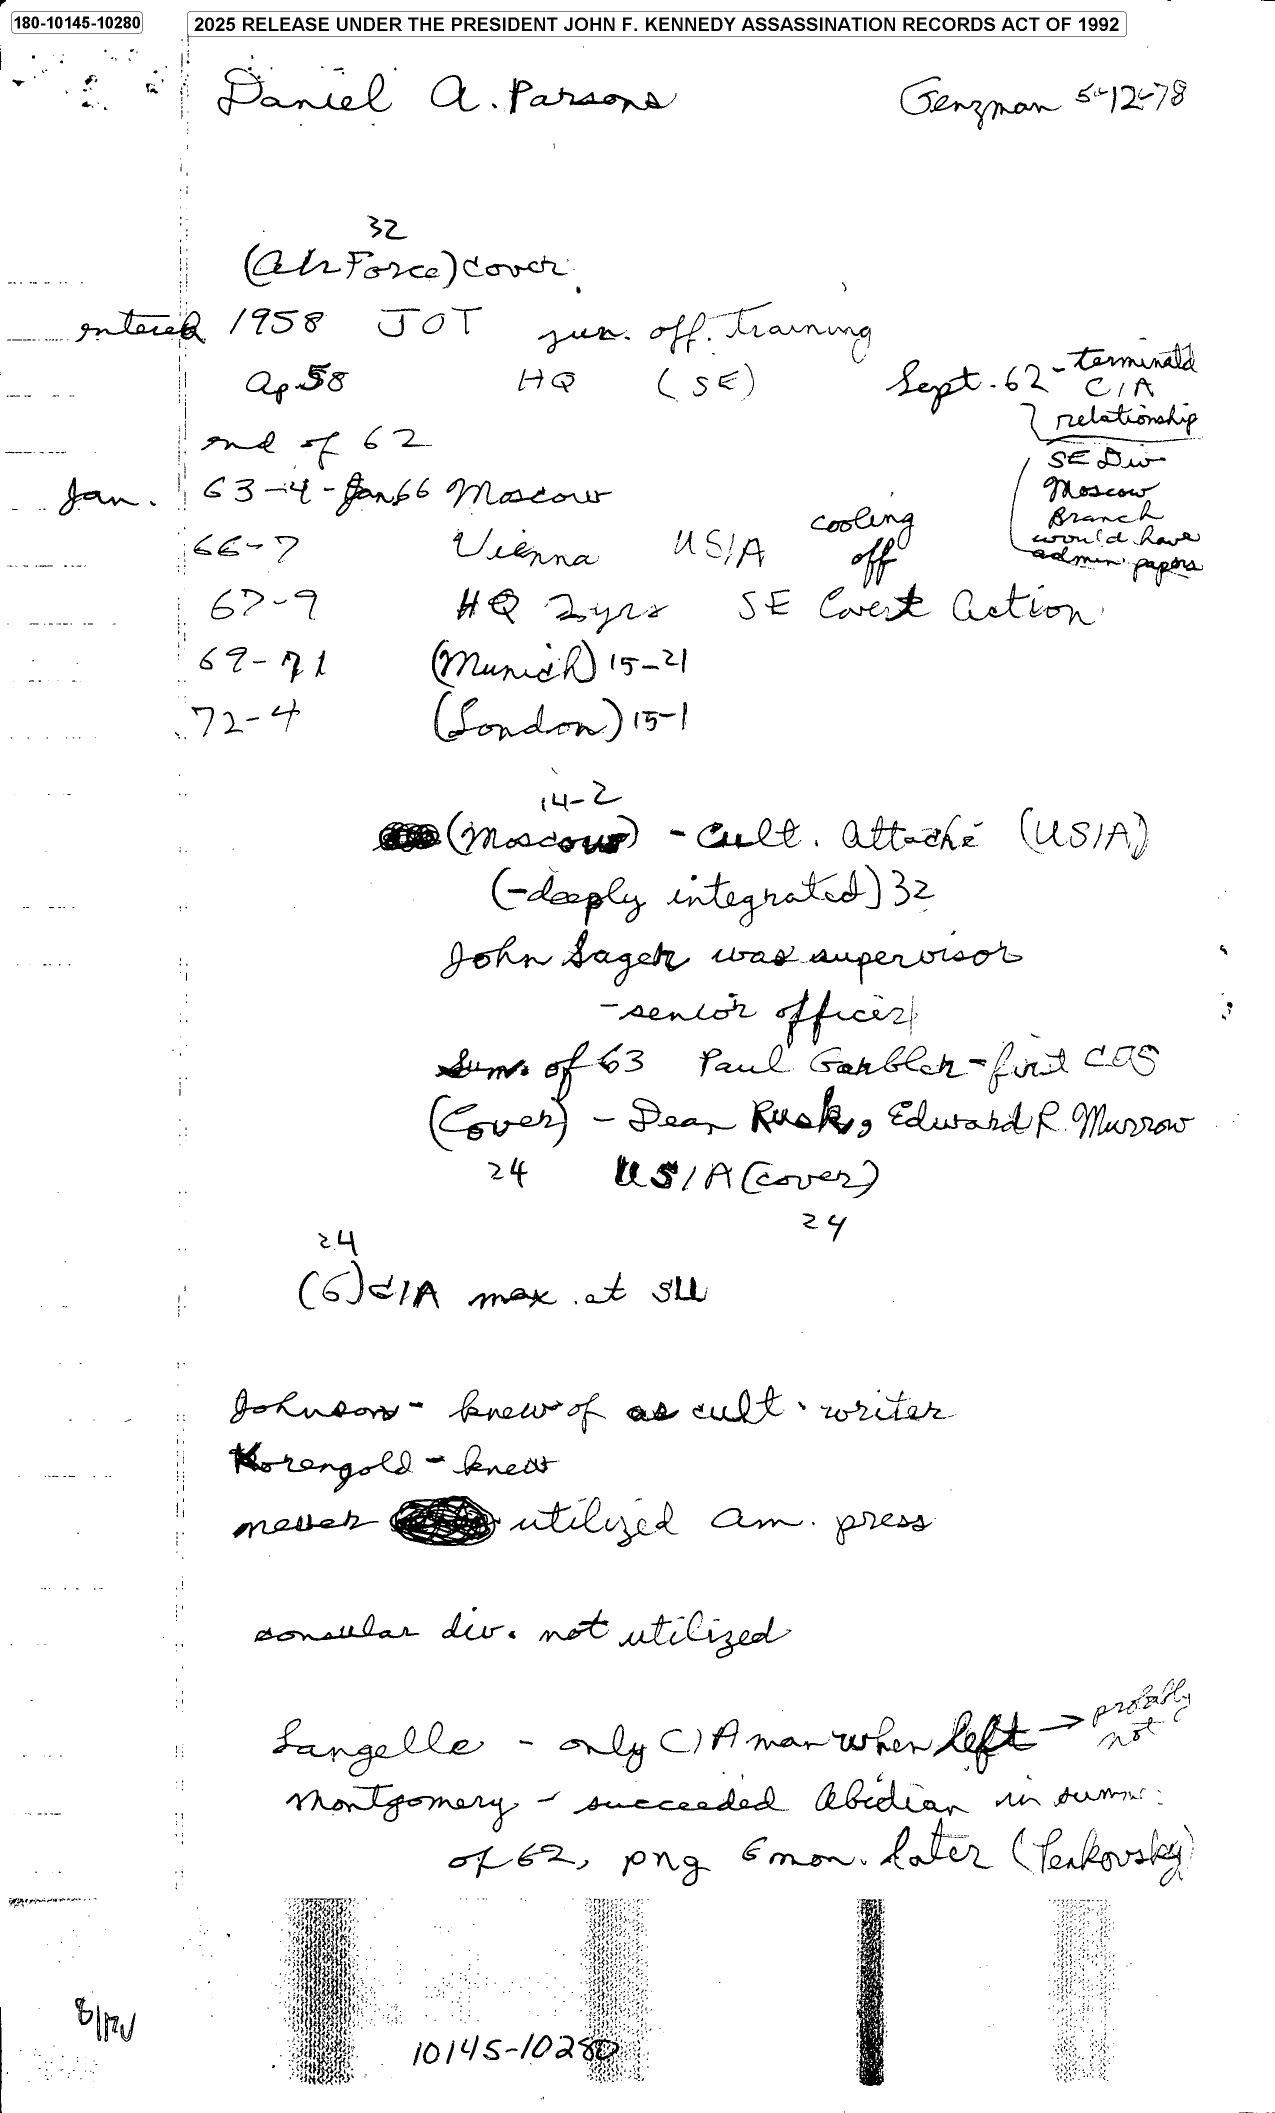 180-10145-10280
2025 RELEASE UNDER THE PRESIDENT JOHN F. KENNEDY ASSASSINATION RECORDS ACT OF 1992
Daniel A. Parsons
Genzman 5-12-78
32
(Air Force) cover
entered 1958 JOT jun. off. Training
Ap 58 HQ (SE)
Sept. 62 - terminated
CIA
relationship
end of 62
SE Div
Moscow
Branch
would have
admin papers
Jan. 63-4-Jan 66 Moscow
66-7 Vienna USIA cooling
off
67-9 HQ 2 yrs SE Covert Action
69-71 (Munich) 15-21
72-4 (London) 15-1
14-2
(Moscow) - Cult. Attaché (USIA)
(-deeply integrated) 32
John Sager was supervisor
- senior officer
Sum. of 63 Paul Garbler - first COS
(Cover) - Dean Rusk, Edward R. Murrow
24 USIA (cover)
24
24
(6) CIA max. at
Johnson - knew of as cult. writer
Korengold - knew
never utilized am. press
consular div. not utilized
Langelle - only CIA man when left → probably
not
Montgomery - succeeded Abidian in summ
of 62, png 6 mon. later (Penkovsky)
10145-10280